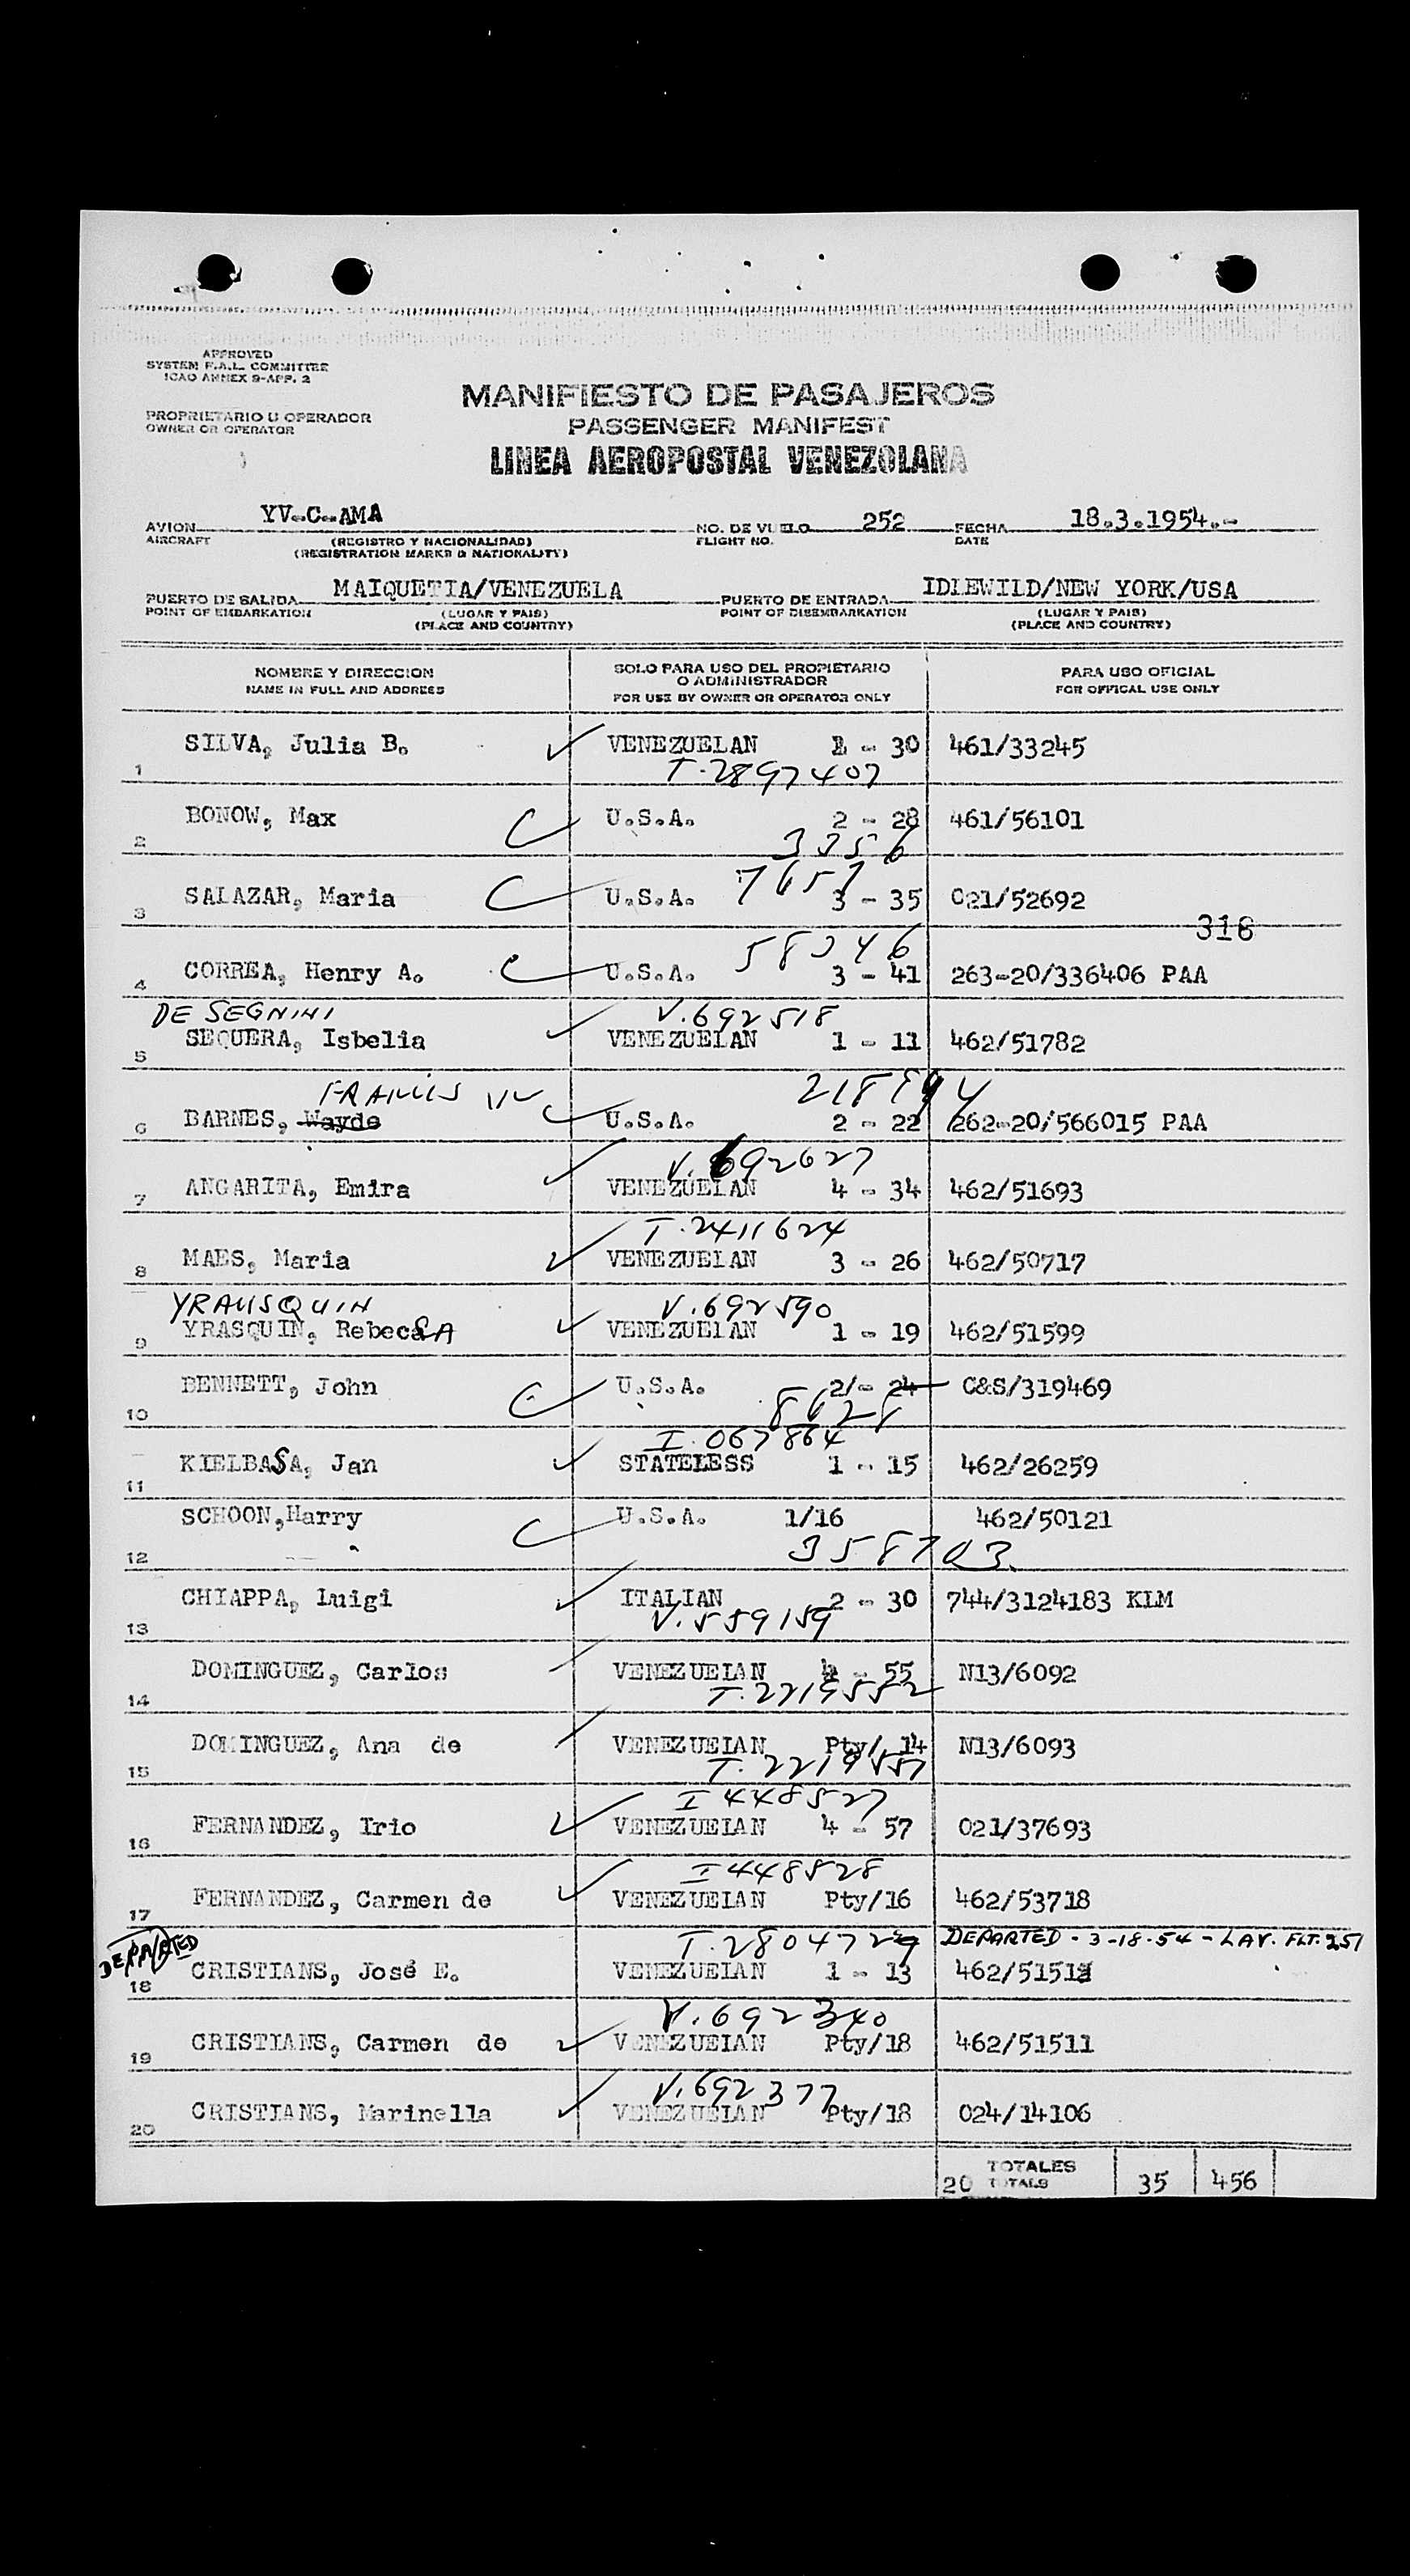 APPROVED
SYSTEM F.A.L. COMMITTEE
ICAO ANNEX 9-APP. 2
PROPRIETARIO U OPERADOR
OWNER OR OPERATOR
MANIFIESTO DE PASAJEROS
PASSENGER MANIFEST
LINEA AEROPOSTAL VENEZOLANA
AVION YV-C-AMA NO. DE VUELO 252 FECHA 18.3.1954.-
AIRCRAFT (REGISTRO Y NACIONALIDAD) FLIGHT NO. DATE
(REGISTRATION MARKS & NATIONALITY)
PUERTO DE SALIDA MAIQUETIA/VENEZUELA PUERTO DE ENTRADA IDLEWILD/NEW YORK/USA
POINT OF EMBARKATION (LUGAR Y PAIS) POINT OF DISEMBARKATION (LUGAR Y PAIS)
(PLACE AND COUNTRY) (PLACE AND COUNTRY)
NOMBRE Y DIRECCION SOLO PARA USO DEL PROPIETARIO PARA USO OFICIAL
O ADMINISTRADOR
NAME IN FULL AND ADDRESS FOR USE BY OWNER OR OPERATOR ONLY FOR OFFICAL USE ONLY
SILVA, Julia B. VENEZUELAN 1 - 30 461/33245
1 T.2897407
BONOW, Max U.S.A. 2 - 28 461/56101
2 3356
7657
SALAZAR, Maria U.S.A. 3 - 35 021/52692
3 316
58346
CORREA, Henry A. U.S.A. 3 - 41 263-20/336406 PAA
4
DE SEGNINI V.692518
SEQUERA, Isbelia VENEZUELAN 1 - 11 462/51782
5
FRANCIS W
BARNES, Wayde U.S.A. 2 - 22 262-20/566015 PAA
6
V.692627
ANGARITA, Emira VENEZUELAN 4 - 34 462/51693
7
T.2411624
MAES, Maria VENEZUELAN 3 - 26 462/50717
8
YRAUSQUIN V.692590
YRASQUIN, RebecCA VENEZUELAN 1 - 19 462/51599
9
BENNETT, John U.S.A. 2/- 24 C&S/319469
10 8628
I.067864
KIELBASA, Jan STATELESS 1 - 15 462/26259
11
SCHOON,Harry U.S.A. 1/16 462/50121
12 358703
CHIAPPA, Luigi ITALIAN 2 - 30 744/3124183 KLM
13 V.559159
DOMINGUEZ, Carlos VENEZUELAN 4 - 55 N13/6092
14 T.2219552
DOMINGUEZ, Ana de VENEZUELAN Pty/ 14 N13/6093
15 T.2219551
I 448527
FERNANDEZ, Irio VENEZUELAN 4 - 57 021/37693
16
I 448528
FERNANDEZ, Carmen de VENEZUELAN Pty/16 462/53718
17
DEPARTED T.2804729 DEPARTED - 3-18-54 - LAV. FLT. 251
CRISTIANS, José E. VENEZUELAN 1 - 13 462/51512
18
V.692340
CRISTIANS, Carmen de VENEZUELAN Pty/18 462/51511
19
V.692377
CRISTIANS, Marinella VENEZUELAN Pty/18 024/14106
20
TOTALES
20 TOTALS 35 456